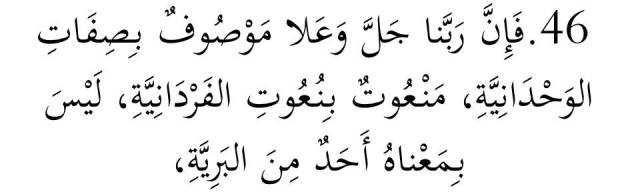 46. فَإِنَّ رَبَّنا جَلَّ وَعَلا مَوْصُوفٌ بِصِفَاتِ
الوَحْدَانِيَّةِ، مَنْعُوتٌ بِنُعُوتِ الفَرْدَانِيَّةِ، لَيْسَ
بِمَعْناهُ أَحَدٌ مِنَ البَرِيَّةِ،